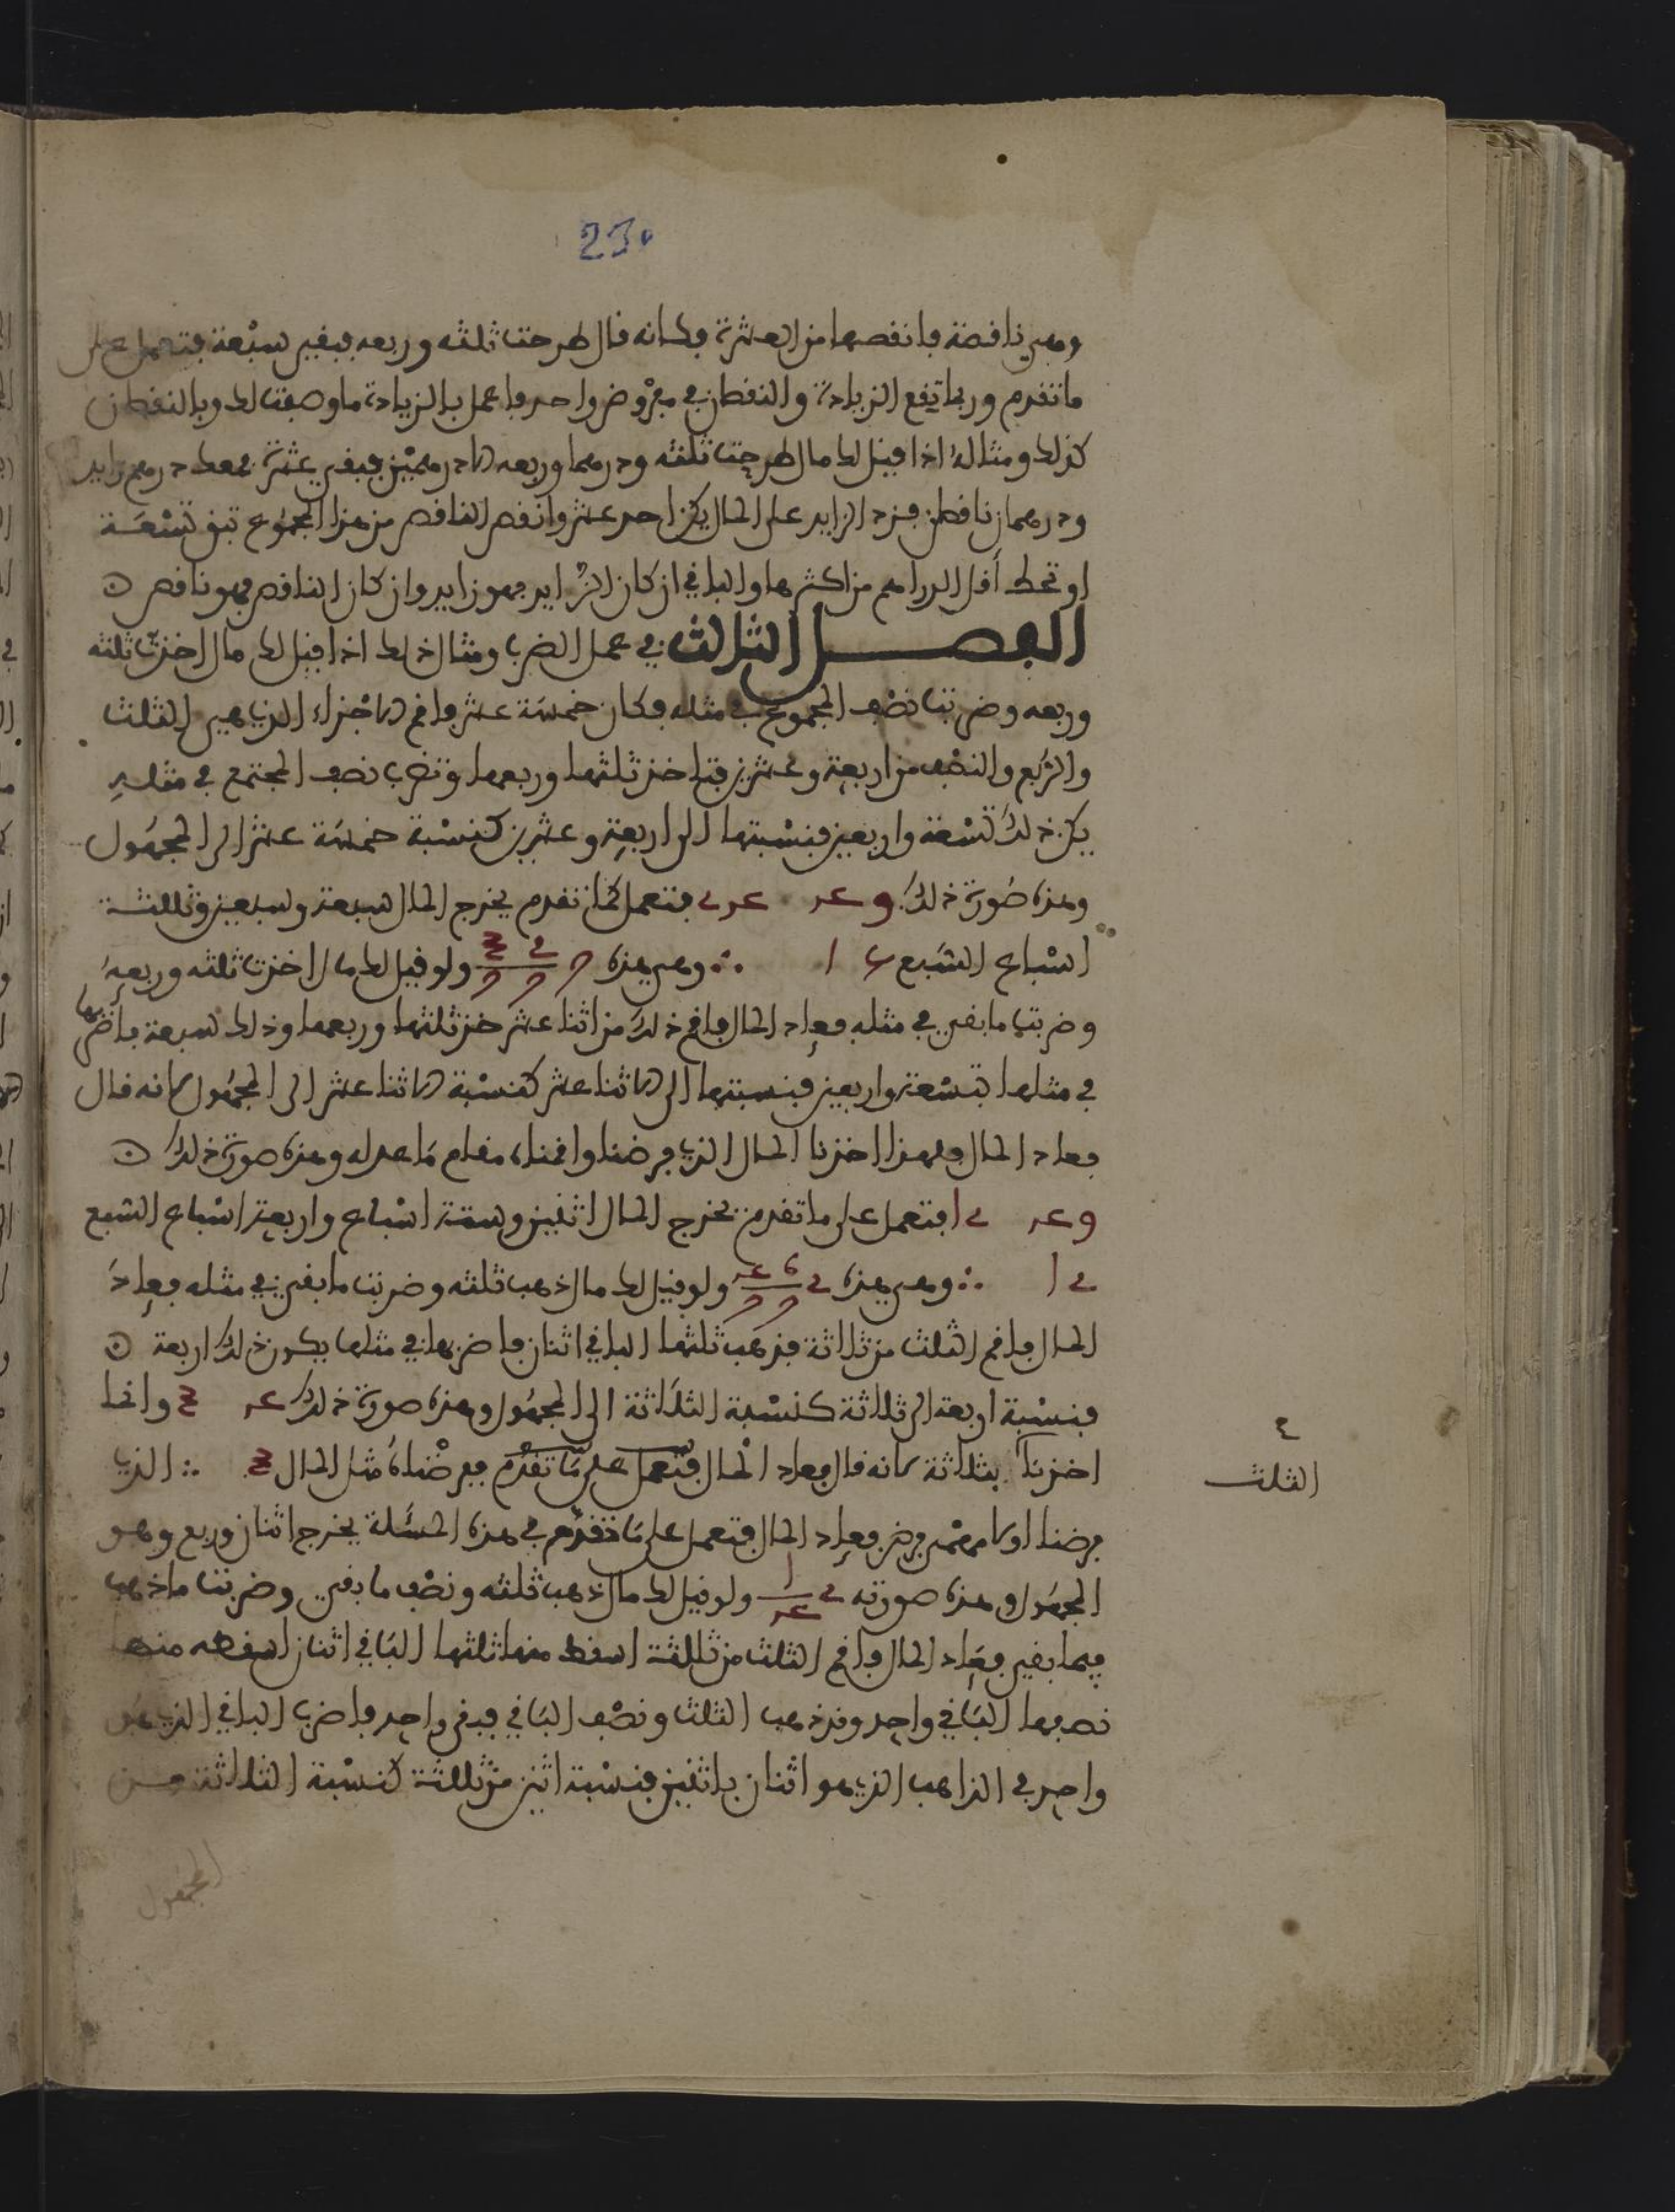 23
وهي ناقصة فانقصها من العشرة فكانه قال طرحت ثلثه وربعه فبقي سبعة فتعمل على
ما تقدم وربما تقع الزيادة والنقصان في مفروض واحد فاعمل بالزيادة ما وصفت لك وبالنقصان
كذلك ومثاله اذا قيل لك مال طرحت ثلثه ودرهما وربعه الا درهمين فبقي عشرة فمعك درهم زايد
ودرهمان ناقصان فزد الزايد على المال يكن احد عشر وانقص الناقص من هذا المجموع تبق تسعة
او تحط أقل الدراهم من اكثرها والباقي ان كان الزايد فهو زايد وان كان الناقص فهو ناقص
الفصل الثالث في عمل الضرب ومثال ذلك اذا قيل لك مال اخذت ثلثه
وربعه وضربت نصف المجموع في مثله فكان خمسة عشر فاقم الاجزاء الذي هي الثلث
والربع والنصف من اربعة وعشرين فتاخذ ثلثها وربعها وتضرب نصف المجتمع في مثله
يكن ذلك تسعة واربعين فنسبتها الى اربعة وعشرين كنسبة خمسة عشر الى المجهول
وهذه صورة ذلك فتعمل كما تقدم يخرج المال سبعة وسبعين وثلاثة
اسباع السبع وهي هذه ولو قيل لك مال اخذت ثلثه وربعه
وضربت ما بقي في مثله فعاد المال فاقم ذلك من اثنا عشر خذ ثلثها وربعها وذلك سبعة فاضربها
في مثلها بتسعة واربعين فنسبتها الى الاثنا عشر كنسبة الاثنا عشر الى المجهول لانه قال
فعاد المال ولهذا اخذنا المال الذي فرضنا واقمناه مقام ما عدله وهذه صورة ذلك
فتعمل على ما تقدم يخرج المال اثنين وستة اسباع واربعة اسباع السبع
وهي هذه ولو قيل لك مال ذهب ثلثه وضربت ما بقي في مثله فعاد
المال فاقم الثلث من ثلاثة فذهب ثلثها الباقي اثنان فاضربها في مثلها يكون ذلك اربعة
فنسبة اربعة الى ثلاثة كنسبة الثلاثة الى المجهول وهذه صورة ذلك وانما
اخذنا بثلاثة لانه قال فعاد المال فتعمل على ما تقدم ففرضناه مثل المال الذي
٤
الثلث
فرضنا اولا فعاد المال فتعمل على ما تقدم في هذه المسئلة يخرج اثنان وربع وهو
المجهول وهذه صورته ولو قيل لك مال ذهب ثلثه ونصف ما بقي وضربت ما ذهب
فيما بقي فعاد المال فاقم الثلث من ثلاثة اسقط منها ثلثها الباقي اثنان اسقط منها
نصفها الباقي واحد وقد ذهب الثلث ونصف الباقي فبقي واحد فاضرب الباقي الذي هو
واحد في الذاهب الذي هو اثنان باثنين فنسبة اثنين من ثلاثة كنسبة الثلاثة من
المجهول